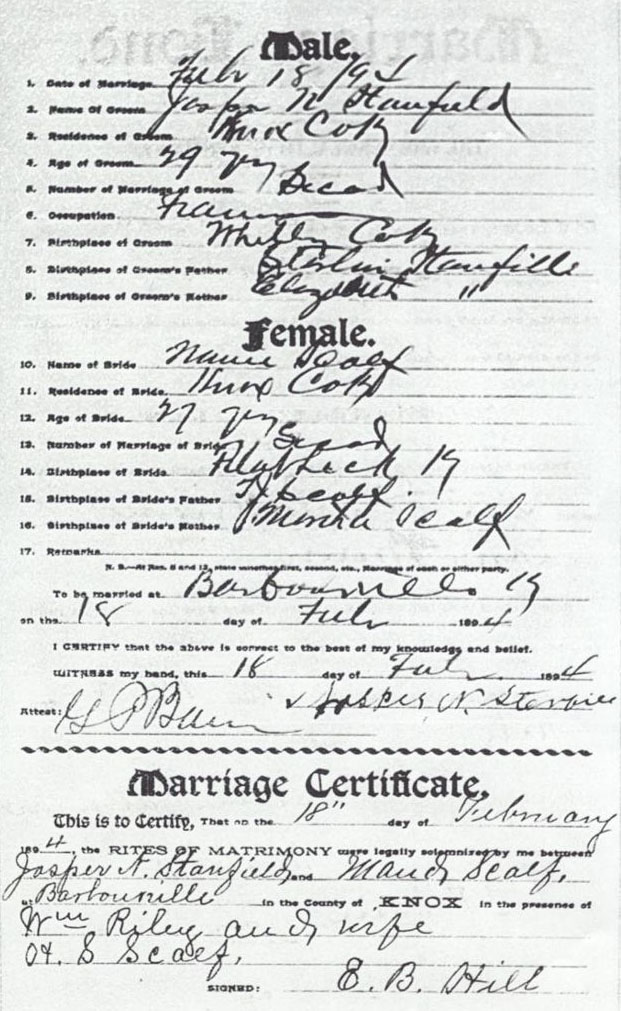 Male.
1. Date of Marriage Feby 18 /94
2. Name Of Groom Jasper N Stanfield
3. Residence of Groom Knox Co Ky
4. Age of Groom 29 yrs
5. Number of Marriage of Groom Second
6. Occupation Farmer
7. Birthplace of Groom Whitley Co Ky
8. Birthplace of Groom's Father Sterlin Stanfille
9. Birthplace of Groom's Mother Elizabeth "
Female.
10. Name of Bride Scalf
11. Residence of Bride Knox Co Ky
12. Age of Bride 27 yrs
13. Number of Marriage of Bride Second
14. Birthplace of Bride Flat Lick Ky
15. Birthplace of Bride's Father Scalf
16. Birthplace of Bride's Mother Scalf
17. Remarks
N. B.—At Nos. 5 and 13, state whether first, second, etc., Marriage of each or either party.
To be married at Barbourville Ky
on the 18 day of Feby 1894
I CERTIFY that the above is correct to the best of my knowledge and belief.
WITNESS my hand, this 18 day of Feby 1894
Attest: Jasper N.
Marriage Certificate.
This is to Certify, That on the 18" day of February
1894, the RITES OF MATRIMONY were legally solemnized by me between
Jasper N. Stanfield and Mandy Scalf,
at Barbourville in the County of KNOX in the presence of
Wm Riley and wife
H. S Scalf,
SIGNED: E. B. Hill